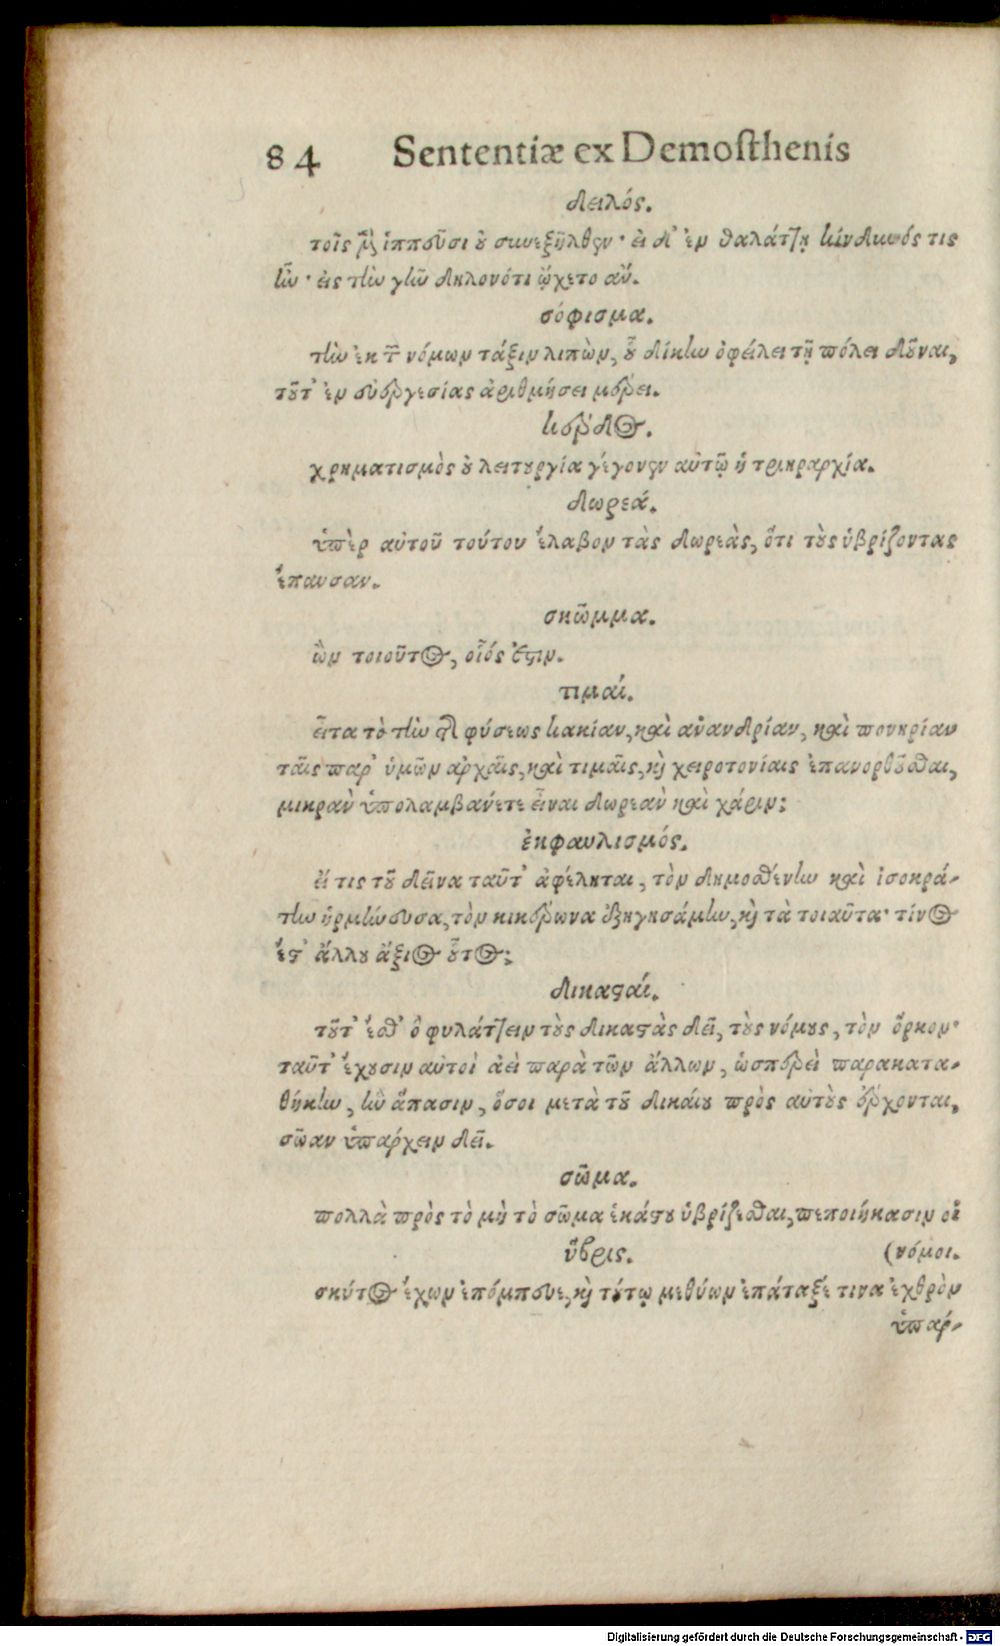 84 Sententiæ ex Demosthenis
δειλός.
τοῖς μὲν ἱππεῦσι οὐ συνεξῆλθεν· εἰ δ' ἐν θαλάττῃ κίνδυνός τις
ἦν· εἰς τὴν γῆν δηλονότι ᾤχετο ἄν.
σόφισμα.
τὴν ἐκ τῶν νόμων τάξιν λιπὼν, οὗ δίκην ὀφείλει τῇ πόλει δοῦναι,
τοῦτ' ἐν εὐεργεσίας ἀριθμήσει μέρει.
κέρδος.
χρηματισμὸς οὐ λειτουργία γέγονεν αὐτῷ ἡ τριηραρχία.
δωρεά.
ὑπὲρ αὐτοῦ τούτου ἔλαβον τὰς δωρεὰς, ὅτι τοὺς ὑβρίζοντας
ἔπαυσαν.
σκῶμμα.
ὢν τοιοῦτος, οἷός ἐστιν.
τιμαί.
εἶτα τὸ τὴν τῆς φύσεως κακίαν, καὶ ἀνανδρίαν, καὶ πονηρίαν
ταῖς παρ' ὑμῶν ἀρχαῖς, καὶ τιμαῖς, καὶ χειροτονίαις ἐπανορθοῦσθαι,
μικρὰν ὑπολαμβάνετε εἶναι δωρεὰν καὶ χάριν;
ἐκφαυλισμός.
εἴ τις τοῦ δεῖνα ταῦτ' ἀφέληται, τὸν δημοσθένην καὶ ἰσοκρά-
την ἡρμήνευσα, τὸν κικέρωνα ἐξηγησάμην, καὶ τὰ τοιαῦτα· τίνος
ἔστ' ἄλλου ἄξιος οὗτος;
δικασταί.
τοῦτ' ἔσθ' ὃ φυλάττειν τοὺς δικαστὰς δεῖ, τοὺς νόμους, τὸν ὅρκον·
ταῦτ' ἔχουσιν αὐτοὶ ἀεὶ παρὰ τῶν ἄλλων, ὡσπερεὶ παρακατα-
θήκην, ἣν ἅπασιν, ὅσοι μετὰ τοῦ δικαίου πρὸς αὐτοὺς ἔρχονται,
σῶαν ὑπάρχειν δεῖ.
σῶμα.
πολλὰ πρὸς τὸ μὴ τὸ σῶμα ἑκάστου ὑβρίζεσθαι, πεποιήκασιν οἱ
ὕβρις. (νόμοι.
σκύτος ἔχων ἐπόμπευε, καὶ τούτῳ μεθύων ἐπάταξέ τινα ἐχθρὸν
ὑπάρ-
Digitalisierung gefördert durch die Deutsche Forschungsgemeinschaft - DFG